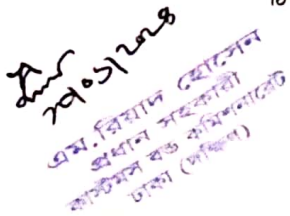 ২৭/০১/২০২৪
এম. রিয়াদ হোসেন
প্রধান সহকারী
কাস্টমস বন্ড কমিশনারেট
ঢাকা (দক্ষিণ)